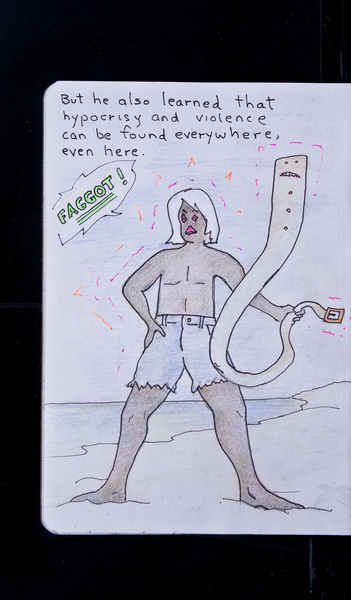 But he also learned that
hypocrisy and violence
can be found everywhere,
even here.
FAGGOT!